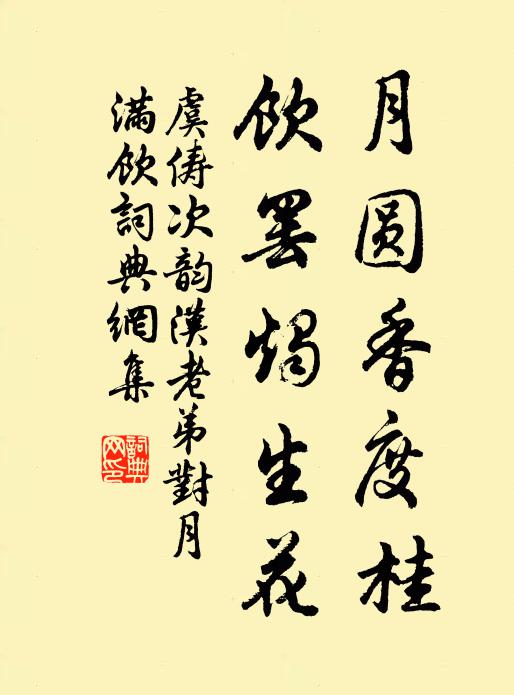 月圓香度桂
飲罷燭生花
虞儔次韵漢老弟對月
滿飲詞典網集
詞典網印